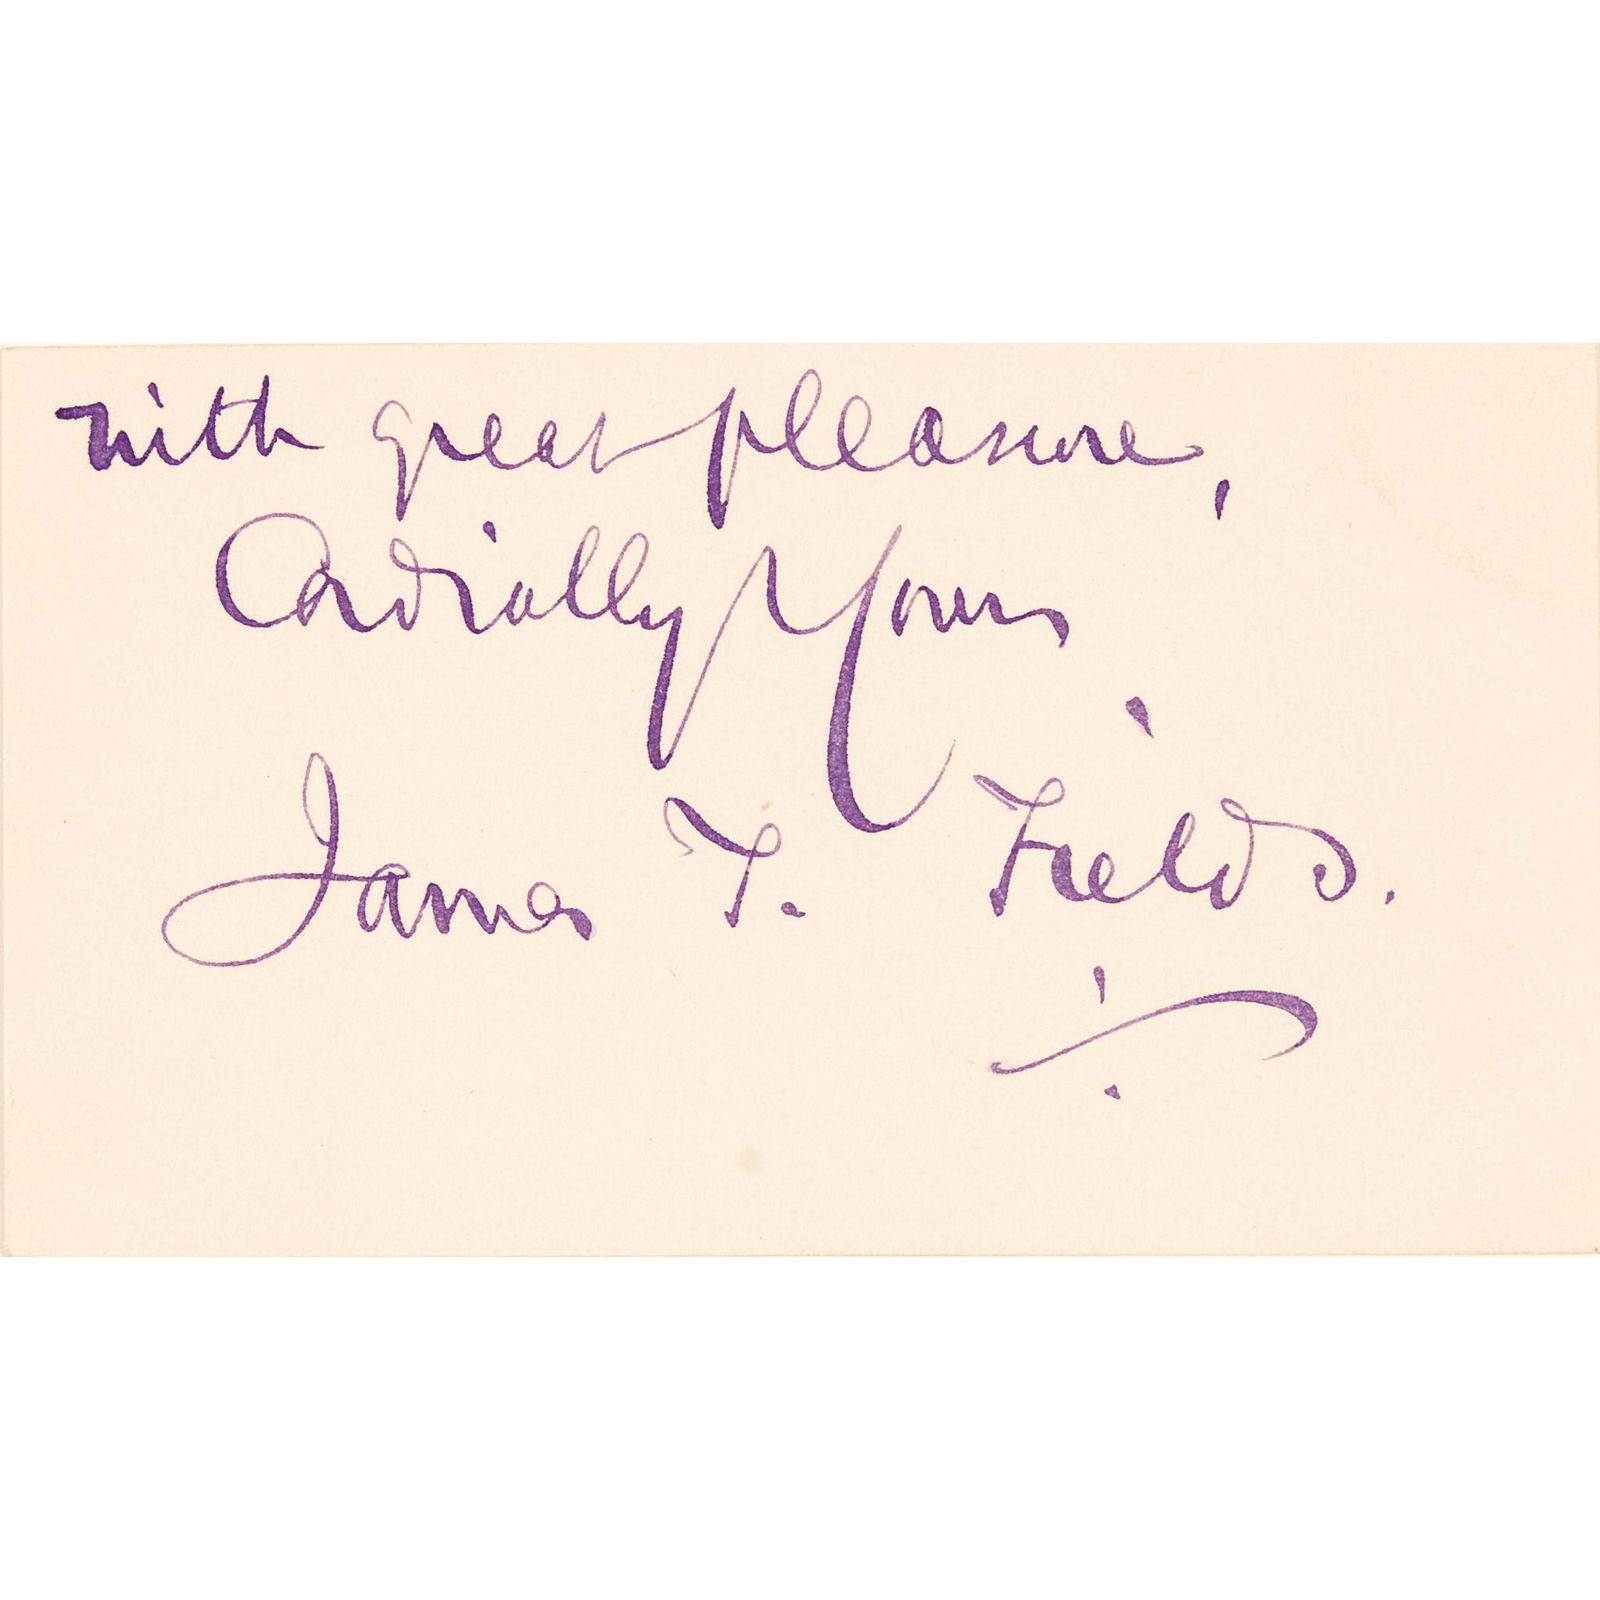 with great pleasure,
Cordially Yours
James T. Fields.